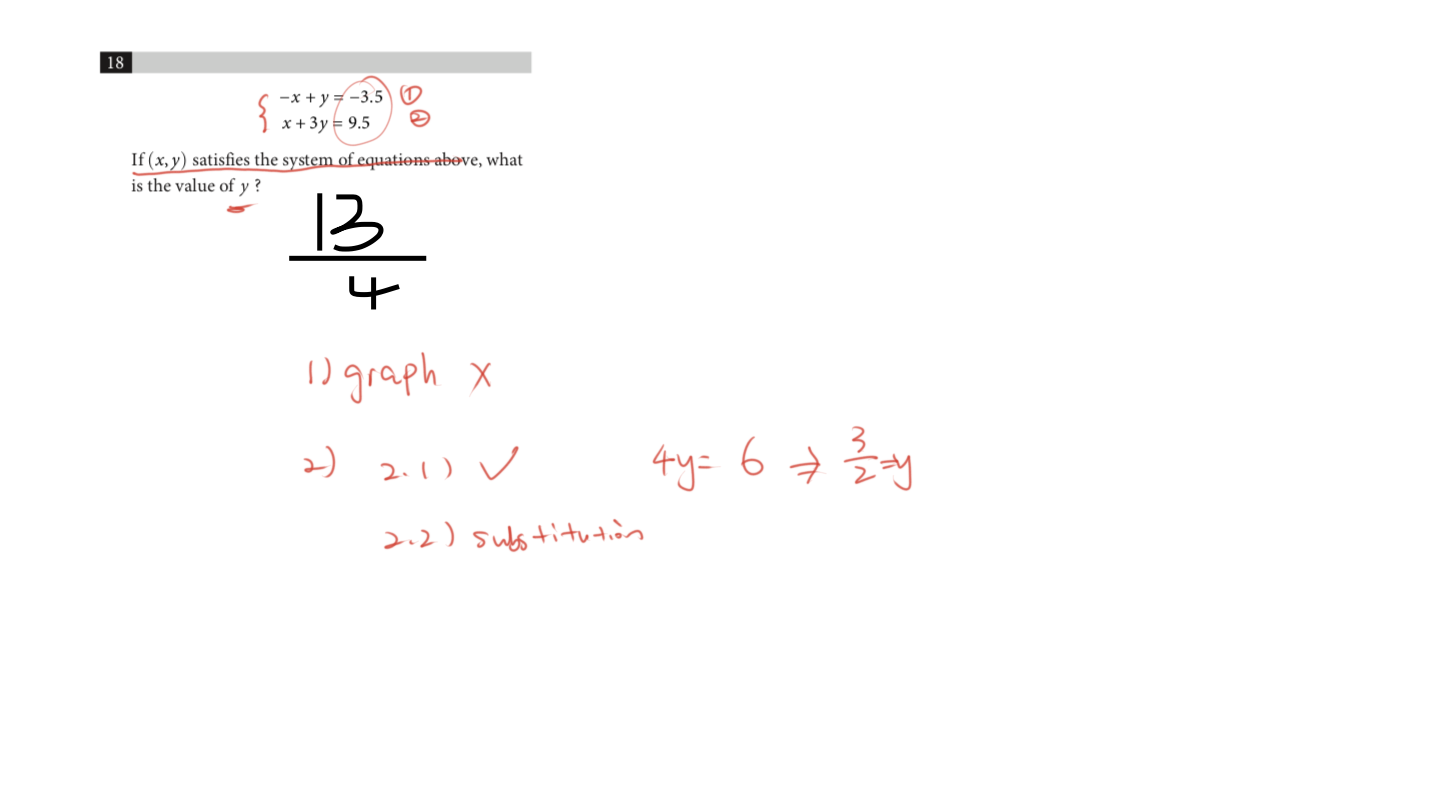 18
−x + y = −3.5 ①
x + 3y = 9.5 ②
If (x, y) satisfies the system of equations above, what
is the value of y ?
13
4
1) graph x
2) 2.1) ✓ 4y = 6 ⇒ 3/2 = y
2.2) substitution